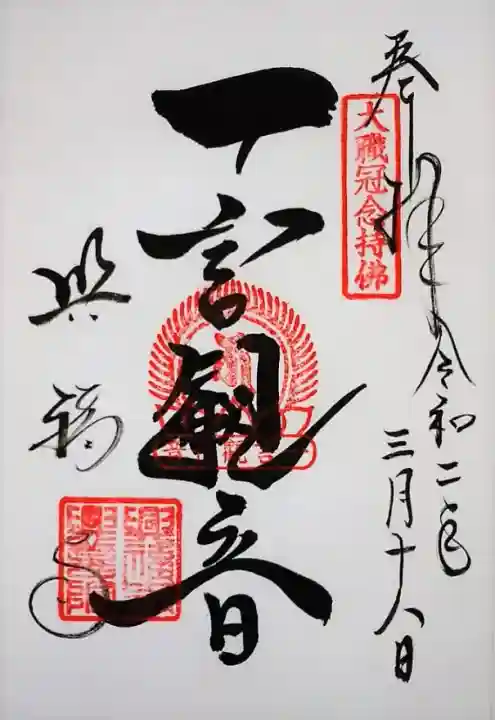 奉拝 令和二年
三月十八日
大職冠念持佛
一言観音
興福寺